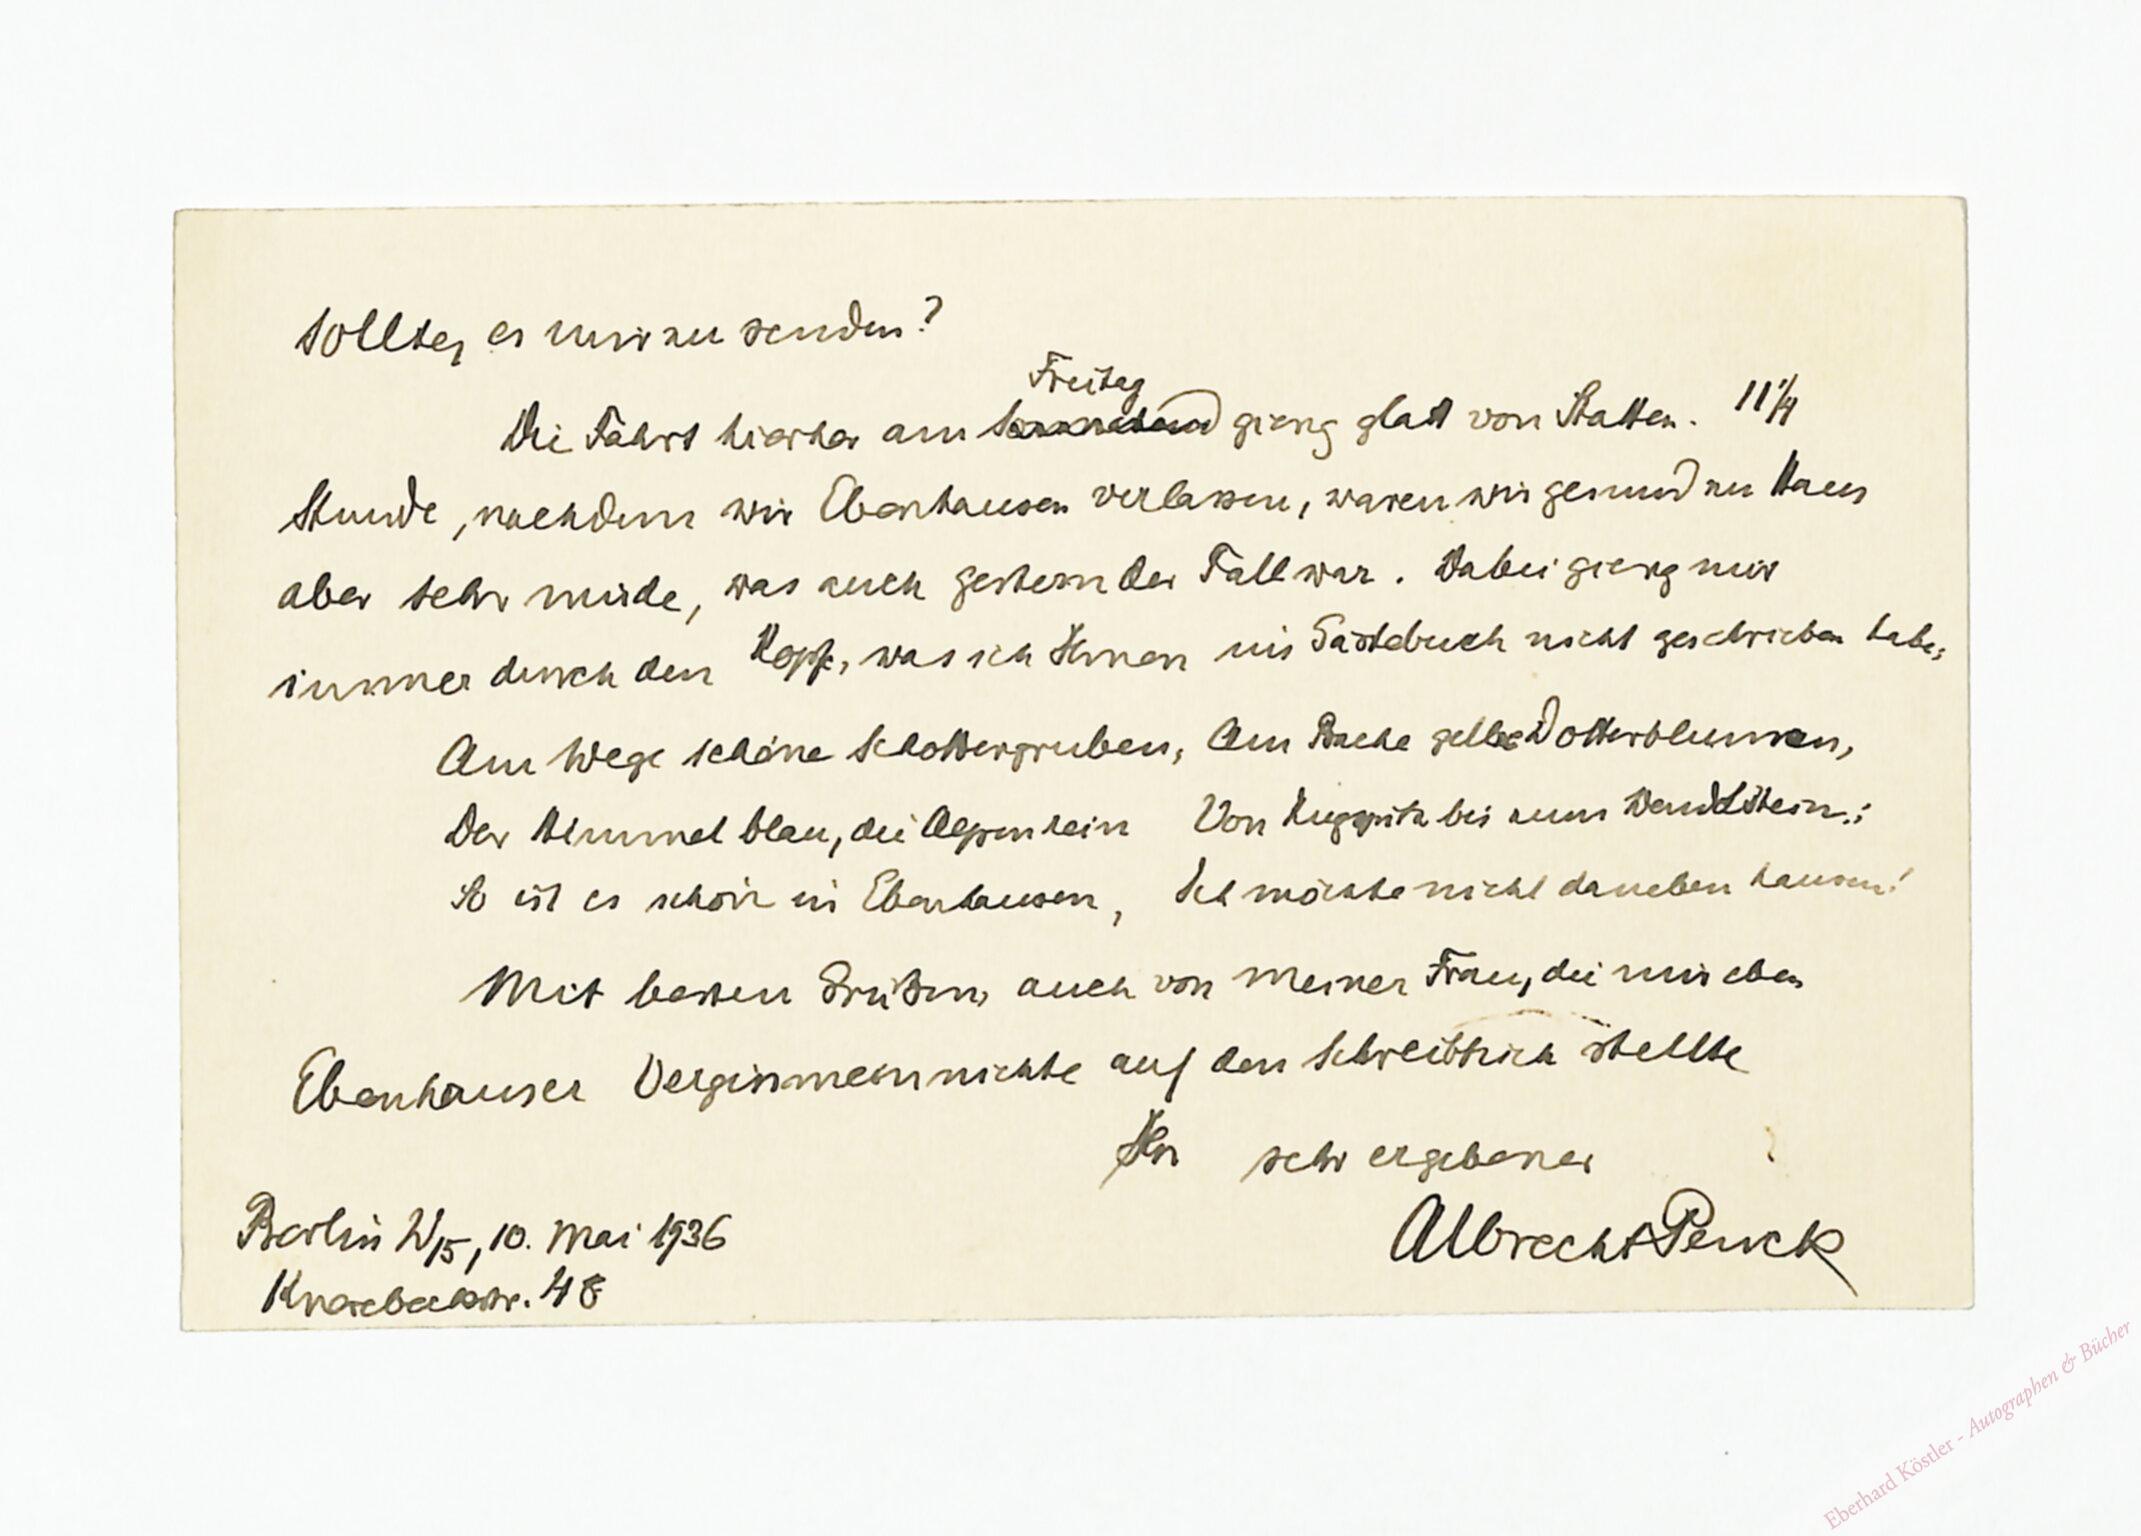 sollten, es mir zu senden?
Freitag
Die Fahrt hierher am Sonnabend gieng glatt von Statten. 11 1/4
Stunde, nachdem wir Ebenhausen verlassen, waren wir gesund zu Haus
aber sehr müde, was auch gestern der Fall war. Dabei gieng mir
immer durch den Kopf, was ich Ihnen ins Gästebuch nicht geschrieben habe:
Am Wege schöne Schottergruben, Am Bache gelbe Dotterblumen,
Der Himmel blau, die Alpen rein Von Zugspitz bis zum Wendelstein.:
So ist es schön in Ebenhausen, Ich möchte nicht daneben hausen!
Mit besten Grüßen, auch von meiner Frau, die mir eben
Ebenhauser Vergissmeinnichte auf den Schreibtisch stellte
Ihr sehr ergebener
Albrecht Penck
Berlin W15, 10. Mai 1936
Knesebeckstr. 48
Eberhard Köstler - Autographen & Bücher